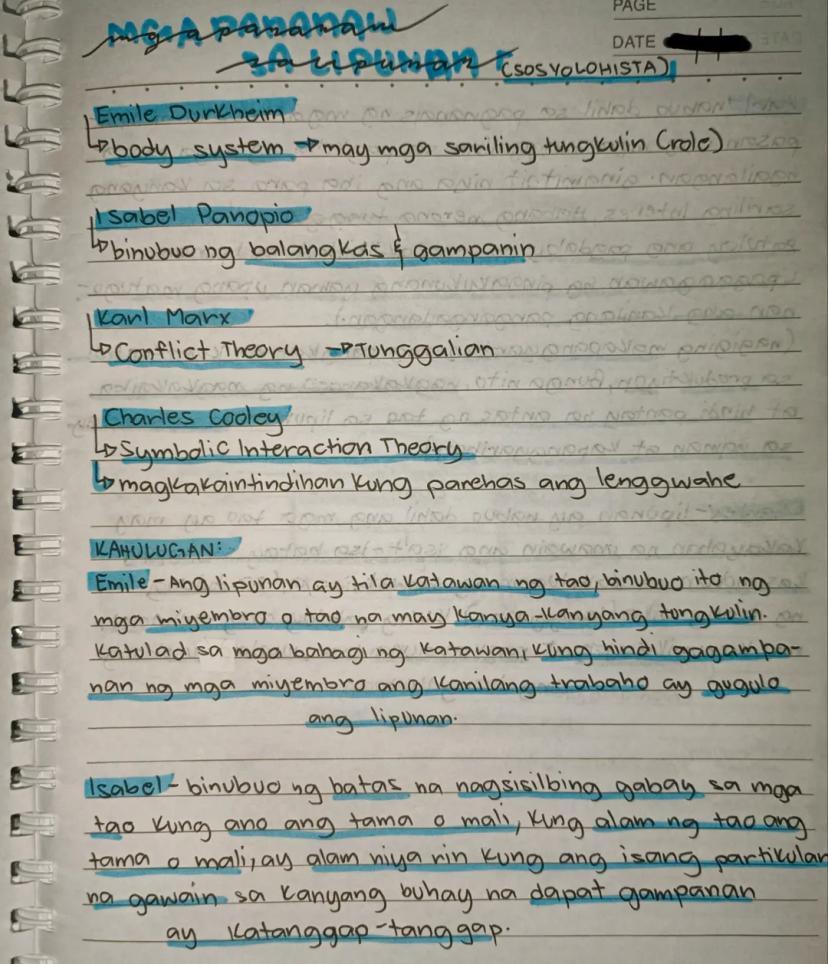 PAGE
DATE
MGA PANANAW
mga pananaw
SA LIPUNAN
sa lipunan (SOSYOLOHISTA)
Emile Durkheim
↳ body system → may mga sariling tungkulin (role)
Isabel Panopio
↳ binubuo ng balangkas & gampanin
Karl Marx
↳ Conflict Theory → Tunggalian
Charles Cooley
↳ Symbolic Interaction Theory
↳ magkakaintindihan kung parehas ang lenggwahe
KAHULUGAN:
Emile - Ang lipunan ay tila katawan ng tao, binubuo ito ng
mga miyembro o tao na may kanya-kanyang tungkulin.
Katulad sa mga bahagi ng katawan, kung hindi gagampa-
nan ng mga miyembro ang kanilang trabaho ay gugulo
ang lipunan.
Isabel - binubuo ng batas na nagsisilbing gabay sa mga
tao kung ano ang tama o mali, kung alam ng tao ang
tama o mali, ay alam niya rin kung ang isang partikular
na gawain sa kanyang buhay na dapat gampanan
ay katanggap-tanggap.